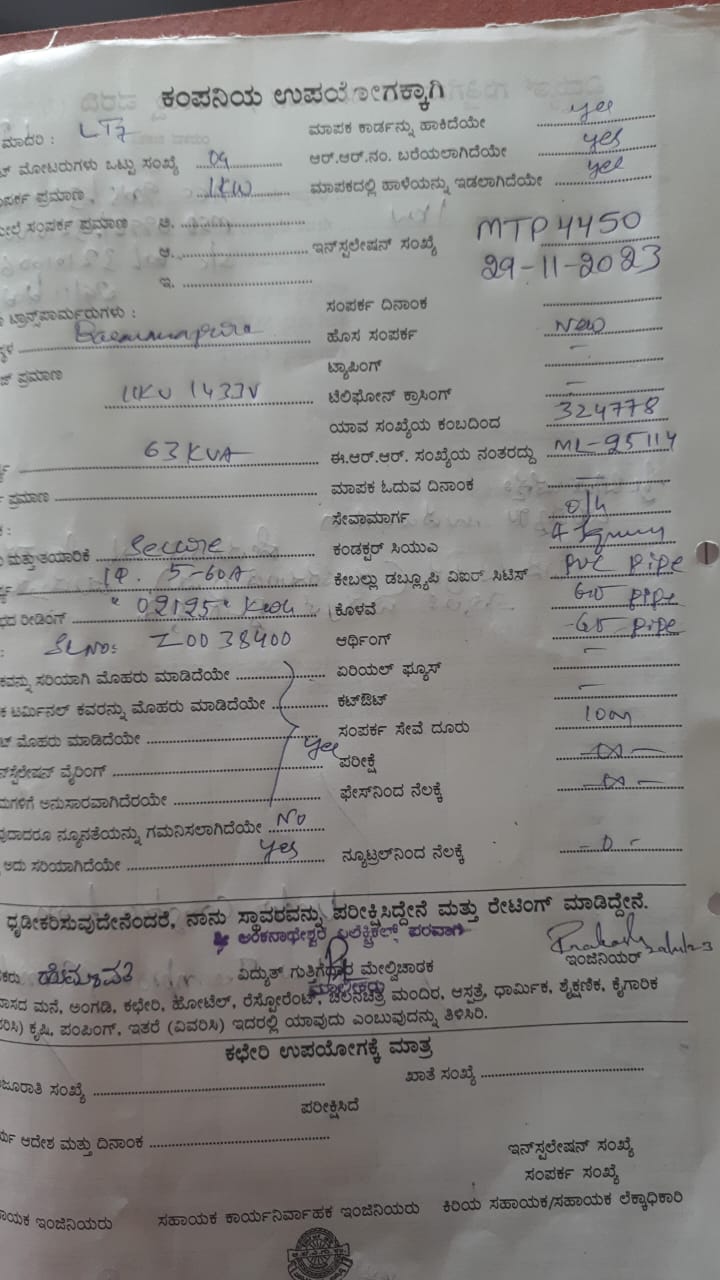 ಕಂಪನಿಯ ಉಪಯೋಗಕ್ಕಾಗಿ
ಮಾದರಿ : LT7 ಮಾಪಕ ಕಾರ್ಡನ್ನು ಹಾಕಿದೆಯೇ yes
ಮೋಟರುಗಳು ಒಟ್ಟು ಸಂಖ್ಯೆ ಆರ್.ಆರ್.ನಂ. ಬರೆಯಲಾಗಿದೆಯೇ yes
ಪ್ರಮಾಣ 1KW ಮಾಪಕದಲ್ಲಿ ಹಾಳೆಯನ್ನು ಇಡಲಾಗಿದೆಯೇ yes
ಸಂಪರ್ಕ ಪ್ರಮಾಣ ಅ.
ಆ. ಇನ್‌ಸ್ಟಲೇಷನ್ ಸಂಖ್ಯೆ MTP4450
29-11-2023
ಇ.
ಟ್ರಾನ್ಸ್‌ಫಾರ್ಮರುಗಳು : ಸಂಪರ್ಕ ದಿನಾಂಕ
ಹೊಸ ಸಂಪರ್ಕ New
ಪ್ರಮಾಣ ಟ್ಯಾಪಿಂಗ್ -
11KV 1433V ಟೆಲಿಫೋನ್ ಕ್ರಾಸಿಂಗ್ -
ಯಾವ ಸಂಖ್ಯೆಯ ಕಂಬದಿಂದ 324778
63KVA ಈ.ಆರ್.ಆರ್. ಸಂಖ್ಯೆಯ ನಂತರದ್ದು ML-95114
ಪ್ರಮಾಣ ಮಾಪಕ ಓದುವ ದಿನಾಂಕ -
ಸೇವಾಮಾರ್ಗ o/h
ಮತ್ತು ತಯಾರಿಕೆ Secure ಕಂಡಕ್ಟರ್ ಸಿಯುಎ
1Φ. 5-60A ಕೇಬಲ್ಲು ಡಬ್ಲ್ಯೂಪಿ ವಿಐಆರ್ ಸಿಟಿಸ್ PVC pipe
ರೀಡಿಂಗ್ "02125" Kwh ಕೊಳವೆ GI pipe
SLNO: Z0038400 ಆರ್ಥಿಂಗ್ GI pipe
ಸರಿಯಾಗಿ ಮೊಹರು ಮಾಡಿದೆಯೇ ಏರಿಯಲ್ ಫ್ಯೂಸ್ -
ಟರ್ಮಿನಲ್ ಕವರನ್ನು ಮೊಹರು ಮಾಡಿದೆಯೇ ಕಟ್‌ಔಟ್ -
ಮೊಹರು ಮಾಡಿದೆಯೇ ಸಂಪರ್ಕ ಸೇವೆ ದೂರು 10m
ವೈರಿಂಗ್ yes ಪರೀಕ್ಷೆ
ಅನುಸಾರವಾಗಿದೆರೆಯೇ ಫೇಸ್‌ನಿಂದ ನೆಲಕ್ಕೆ
ನ್ಯೂನತೆಯನ್ನು ಗಮನಿಸಲಾಗಿದೆಯೇ No
ಅದು ಸರಿಯಾಗಿದೆಯೇ yes ನ್ಯೂಟ್ರಲ್‌ನಿಂದ ನೆಲಕ್ಕೆ - 0 -
ಧೃಡೀಕರಿಸುವುದೇನೆಂದರೆ, ನಾನು ಸ್ಥಾವರವನ್ನು ಪರೀಕ್ಷಿಸಿದ್ದೇನೆ ಮತ್ತು ರೇಟಿಂಗ್ ಮಾಡಿದ್ದೇನೆ.
ಎಲೆಕ್ಟ್ರಿಕಲ್ಸ್ ಪರವಾಗಿ
ವಿದ್ಯುತ್ ಗುತ್ತಿಗೆದಾರ ಮೇಲ್ವಿಚಾರಕ ಇಂಜಿನಿಯರ್
ಮಾಲೀಕರು
ಮನೆ, ಅಂಗಡಿ, ಕಛೇರಿ, ಹೋಟೆಲ್, ರೆಸ್ಟೋರೆಂಟ್, ಚಲನಚಿತ್ರ ಮಂದಿರ, ಆಸ್ಪತ್ರೆ, ಧಾರ್ಮಿಕ, ಶೈಕ್ಷಣಿಕ, ಕೈಗಾರಿಕ
ಕೃಷಿ, ಪಂಪಿಂಗ್, ಇತರೆ (ವಿವರಿಸಿ) ಇದರಲ್ಲಿ ಯಾವುದು ಎಂಬುವುದನ್ನು ತಿಳಿಸಿರಿ.
ಕಛೇರಿ ಉಪಯೋಗಕ್ಕೆ ಮಾತ್ರ
ಸಂಖ್ಯೆ ಖಾತೆ ಸಂಖ್ಯೆ
ಪರೀಕ್ಷಿಸಿದೆ
ಆದೇಶ ಮತ್ತು ದಿನಾಂಕ
ಇನ್‌ಸ್ಟಲೇಷನ್ ಸಂಖ್ಯೆ
ಸಂಪರ್ಕ ಸಂಖ್ಯೆ
ಇಂಜಿನಿಯರು ಸಹಾಯಕ ಕಾರ್ಯನಿರ್ವಾಹಕ ಇಂಜಿನಿಯರು ಕಿರಿಯ ಸಹಾಯಕ/ಸಹಾಯಕ ಲೆಕ್ಕಾಧಿಕಾರಿ